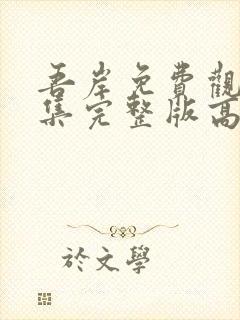 吾岸免費觀
集完整版高
於文學